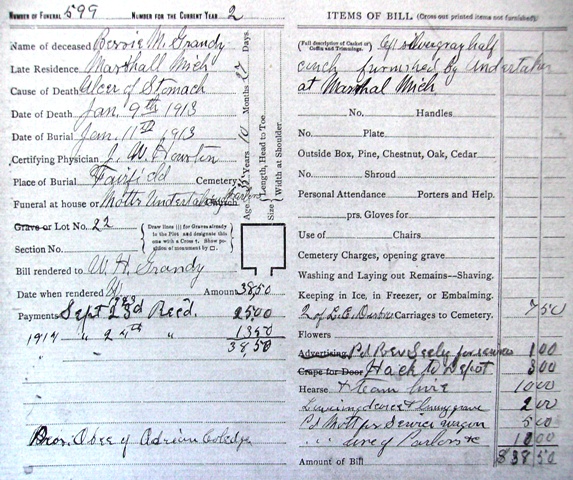 NUMBER OF FUNERAL 599 NUMBER FOR THE CURRENT YEAR 2
Name of deceased Bervie M. Grandy
Late Residence Marshall Mich
Cause of Death Ulcer of Stomach
Date of Death Jan. 9th 1913
Date of Burial Jan. 11th 1913
Certifying Physician
Place of Burial Fairfield Cemetery
Funeral at house or Motts Undertaking
Grave or Lot No. 22
Section No.
Draw lines ||| for Graves already in the Plot and designate this one with a Cross †. Show position of monument by □.
Bill rendered to W. H. Grandy
Date when rendered Amount 38.50
Payments Sept 23d Recd. 25.00
1914 " 24th " 13.50
38.50
Bros. Obee of Adrian
Age Years 10 Months 27 Days.
Size { Length, Head to Toe.
Width at Shoulder.
ITEMS OF BILL (Cross out printed items not furnished)
(Full description of Casket or Coffin and Trimmings. silver gray half
couch furnished by Undertaker
at Marshal Mich
No. Handles
No. Plate
Outside Box, Pine, Chestnut, Oak, Cedar
No. Shroud
Personal Attendance Porters and Help.
prs. Gloves for
Use of Chairs
Cemetery Charges, opening grave
Washing and Laying out Remains—Shaving.
Keeping in Ice, in Freezer, or Embalming.
2 of Carriages to Cemetery. 7 50
Flowers
Advertising Pd Rev Seely for services 1 00
Crape for Door Hack to Depot 3 00
Hearse + team hire 10 00
Lowering device + lining grave 2 00
Pd Mott for Service wagon 5 00
" " use of Parlors &c 10 00
Amount of Bill $ 38 50